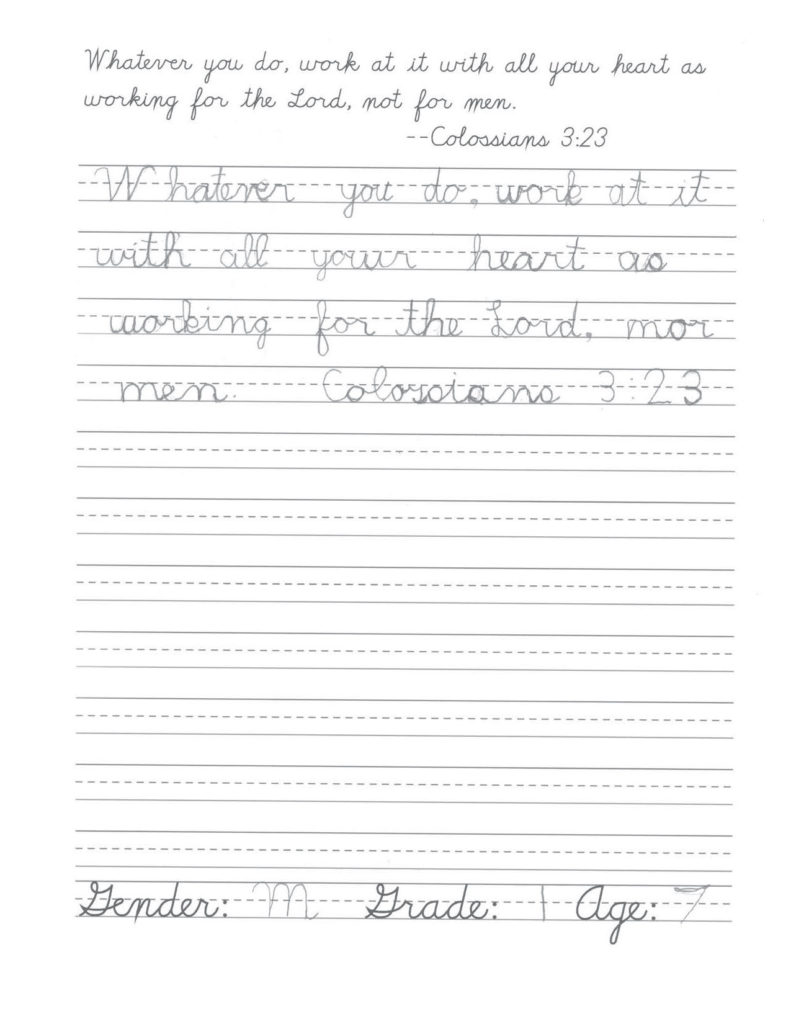 Whatever you do, work at it with all your heart as
working for the Lord, not for men.
--Colossians 3:23
Whatever you do, work at it
with all yourr heart as
working for the Lord, mor
men. Colossians 3:23
Gender: M Grade: 1 Age: 7